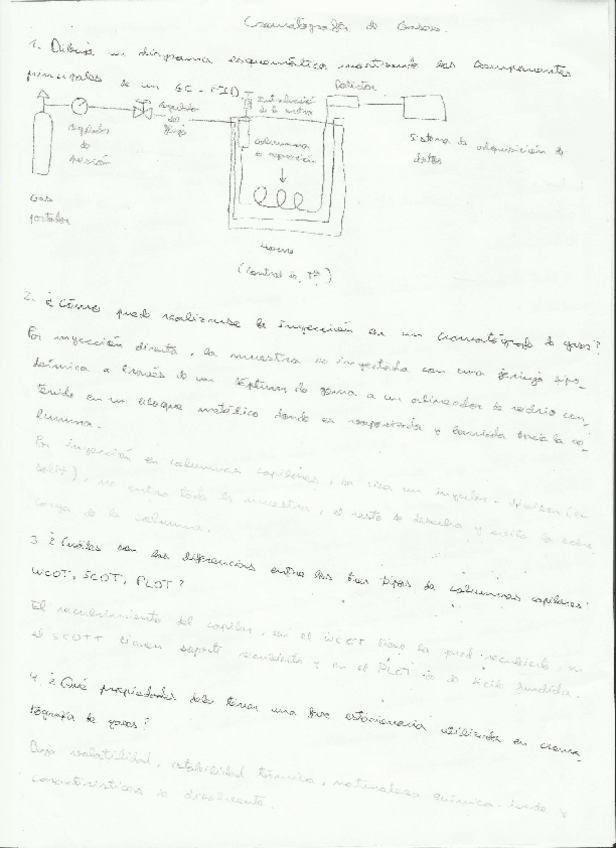 Cromatografía de Gases.
1. Dibuja un diagrama esquemático mostrando los componentes
principales de un GC-FID.
Detector
Regulador del flujo
Introducción de la muestra
Regulador de presión
columna de separación
Sistema de adquisición de datos
Gas portador
Horno
(Control de Tª)
2. ¿Cómo puede realizarse la inyección en un cromatógrafo de gases?
Por inyección directa, la muestra es inyectada con una jeringa hipo-
dérmica a través de un séptum de goma a un alineador de vidrio con-
tenido en un bloque metálico donde es vaporizada y barrida hacia la co-
lumna.
Por inyección en columnas capilares, se usa un inyector-divisor (en
split), no entra toda la muestra, el resto se desecha y evita la sobre
carga de la columna.
3 ¿Cuáles son las diferencias entre los tres tipos de columnas capilares:
WCOT, SCOT, PLOT?
El recubrimiento del capilar, en el WCOT tiene la pared recubierta, en
el SCOTT tienen soporte recubierto y en el PLOT es de sílice fundida.
4. ¿Qué propiedades debe tener una fase estacionaria utilizada en croma-
tografía de gases?
Baja volatilidad, estabilidad térmica, naturaleza química inerte y
características de disolvente.